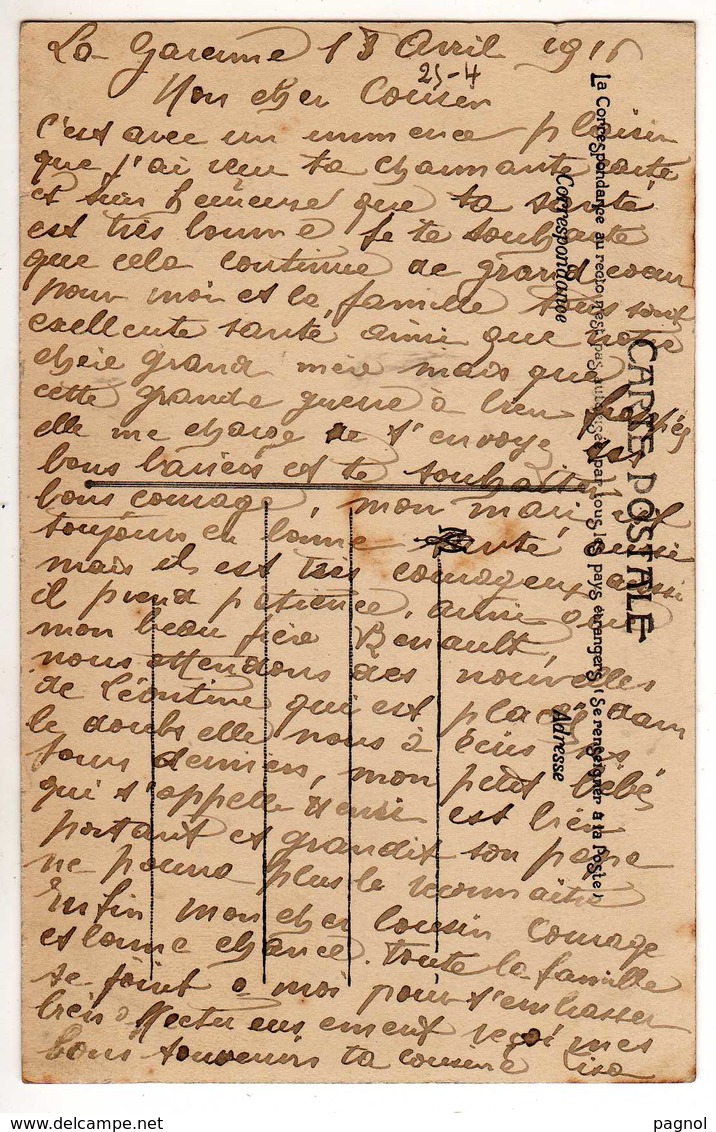 La Garenne 18 Avril 191
25-4
Mon cher Cousin
c'est avec un immence plaisir
que j'ai reçu ta charmante carte
et suis heureuse que ta santé
est très bonne Je te souhaite
que cela continue de grand cœur
pour moi et la famille tous sont
exellente santé ainsi que notre
chère grand mère mais que
cette grande guerre à bien
elle me charge de t'envoyer
bons baisers et te souhaite
bons courage, mon mari est
toujours en bonne santé aussi
mais il est très courageux aussi
il prend patience, ainsi que
mon beau frère Renault,
nous attendons des nouvelles
de Léontine qui est placée dans
le doubs elle nous à écris ses
jours derniers, mon petit bébé
qui s'appelle Henri est bien
portant et grandit son papa
ne pourra plus le reconnaître
Enfin mon cher cousin courage
et bonne chance. toute la famille
se joint a moi pour t'embrasser
bien affectueusement reçoi mes
bons souvenirs ta cousine Lisa
CARTE POSTALE
La Correspondance au recto n'est pas autorisée par tous les pays étrangers (Se renseigner à la Poste)
Correspondance
Adresse
pagnol